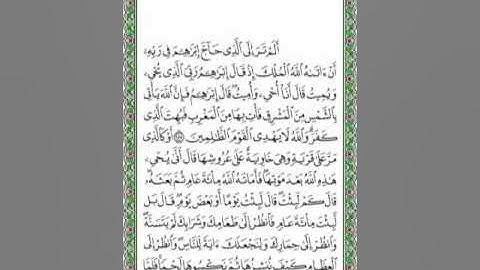 أَلَمْ تَرَ إِلَى ٱلَّذِى حَآجَّ إِبْرَٰهِـۧمَ فِى رَبِّهِۦٓ
أَنْ ءَاتَىٰهُ ٱللَّهُ ٱلْمُلْكَ إِذْ قَالَ إِبْرَٰهِـۧمُ رَبِّىَ ٱلَّذِى يُحْىِۦ
وَيُمِيتُ قَالَ أَنَا۠ أُحْىِۦ وَأُمِيتُ ۖ قَالَ إِبْرَٰهِـۧمُ فَإِنَّ ٱللَّهَ يَأْتِى
بِٱلشَّمْسِ مِنَ ٱلْمَشْرِقِ فَأْتِ بِهَا مِنَ ٱلْمَغْرِبِ فَبُهِتَ ٱلَّذِى
كَفَرَ ۗ وَٱللَّهُ لَا يَهْدِى ٱلْقَوْمَ ٱلظَّٰلِمِينَ ۝٢٥٨ أَوْ كَٱلَّذِى
مَرَّ عَلَىٰ قَرْيَةٍ وَهِىَ خَاوِيَةٌ عَلَىٰ عُرُوشِهَا قَالَ أَنَّىٰ يُحْىِۦ
هَٰذِهِ ٱللَّهُ بَعْدَ مَوْتِهَا ۖ فَأَمَاتَهُ ٱللَّهُ مِا۟ئَةَ عَامٍ ثُمَّ بَعَثَهُۥ ۖ
قَالَ كَمْ لَبِثْتَ ۖ قَالَ لَبِثْتُ يَوْمًا أَوْ بَعْضَ يَوْمٍ ۖ قَالَ بَل
لَّبِثْتَ مِا۟ئَةَ عَامٍ فَٱنظُرْ إِلَىٰ طَعَامِكَ وَشَرَابِكَ لَمْ يَتَسَنَّهْ ۖ
وَٱنظُرْ إِلَىٰ حِمَارِكَ وَلِنَجْعَلَكَ ءَايَةً لِّلنَّاسِ ۖ وَٱنظُرْ إِلَى
ٱلْعِظَامِ كَيْفَ نُنشِزُهَا ثُمَّ نَكْسُوهَا لَحْمًا ۚ فَلَمَّا